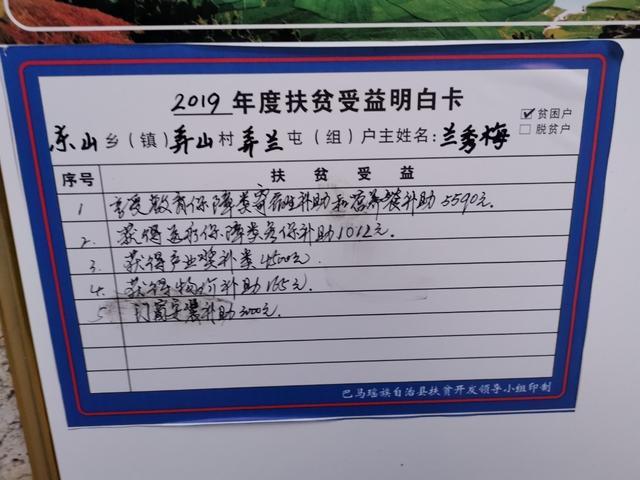 2019 年度扶贫受益明白卡
☑ 贫困户
东山 乡（镇）弄山 村 弄兰 屯（组）户主姓名：兰秀梅
☐ 脱贫户
序号 扶贫受益
1 享受教育保障类寄宿生补助和营养餐补助5590元.
2. 获得医疗保障类参保补助1012元.
3. 获得产业奖补类4500元.
4. 获得物价补助165元.
5 门窗安装补助3000元.
巴马瑶族自治县扶贫开发领导小组印制